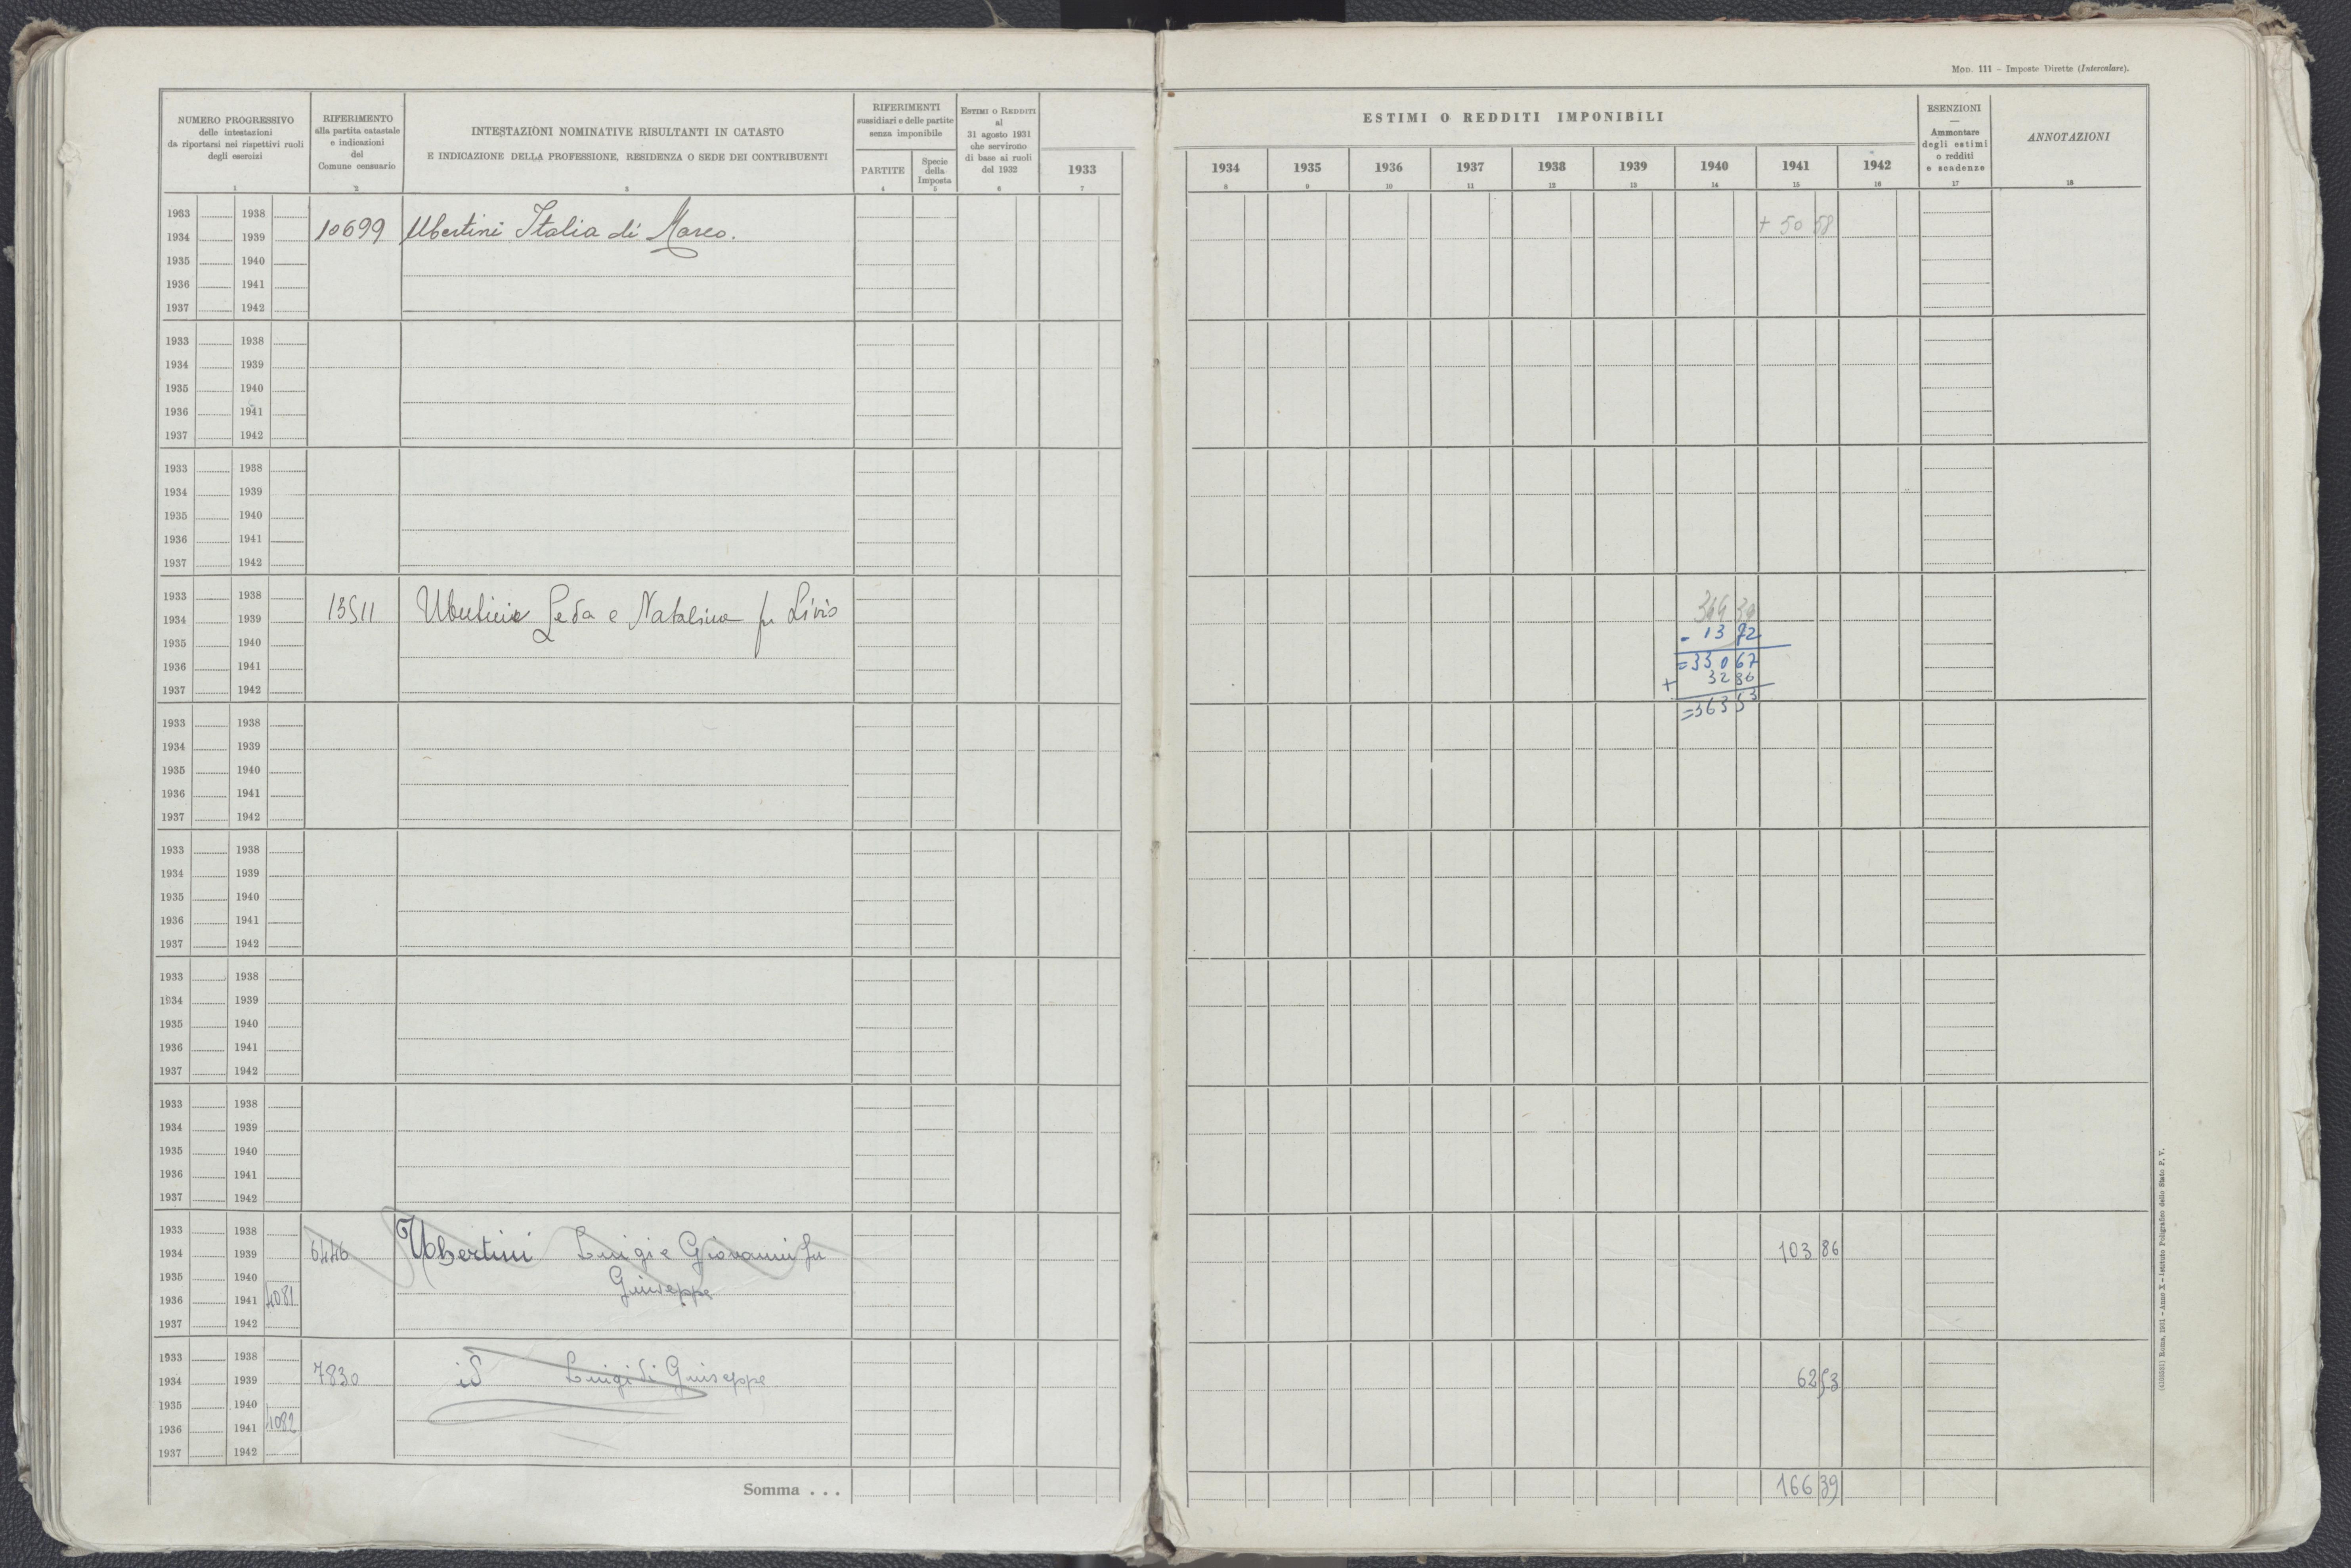 MOD. 111 – Imposte Dirette (Intercalare).
NUMERO PROGRESSIVO
delle intestazioni
da riportarsi nei rispettivi ruoli
degli esercizi
RIFERIMENTO
alla partita catastale
e indicazioni
del
Comune censuario
INTESTAZIONI NOMINATIVE RISULTANTI IN CATASTO
E INDICAZIONE DELLA PROFESSIONE, RESIDENZA O SEDE DEI CONTRIBUENTI
RIFERIMENTI
sussidiari e delle partite
senza imponibile
PARTITE
Specie
della
Imposta
ESTIMI O REDDITI
al
31 agosto 1931
che servirono
di base ai ruoli
del 1932
1933
ESTIMI O REDDITI IMPONIBILI
1934 1935 1936 1937 1938 1939 1940 1941 1942
ESENZIONI
—
Ammontare
degli estimi
o redditi
e scadenze
ANNOTAZIONI
1 2 3 4 5 6 7 8 9 10 11 12 13 14 15 16 17 18
1933 1938
1934 1939 10699 Ubertini Italia di Marco. + 50 58
1935 1940
1936 1941
1937 1942
1933 1938
1934 1939
1935 1940
1936 1941
1937 1942
1933 1938
1934 1939
1935 1940
1936 1941
1937 1942
1933 1938
1934 1939 13511 Leda e Natalina fu Livio
1935 1940 - 13 72
1936 1941 = 330 67
1937 1942 + 32 86
= 363 53
1933 1938
1934 1939
1935 1940
1936 1941
1937 1942
1933 1938
1934 1939
1935 1940
1936 1941
1937 1942
1933 1938
1934 1939
1935 1940
1936 1941
1937 1942
1933 1938
1934 1939
1935 1940
1936 1941
1937 1942
1933 1938
1934 1939 6446 Ubertini Luigi e Giovanni fu 103 86
1935 1940 Giuseppe
1936 1941 4081
1937 1942
1933 1938
1934 1939 7830 id Luigi di Giuseppe 62 53
1935 1940
1936 1941 4082
1937 1942
Somma . . . 166 39
Roma, 1931 – Anno X – Istituto Poligrafico dello Stato P. V.